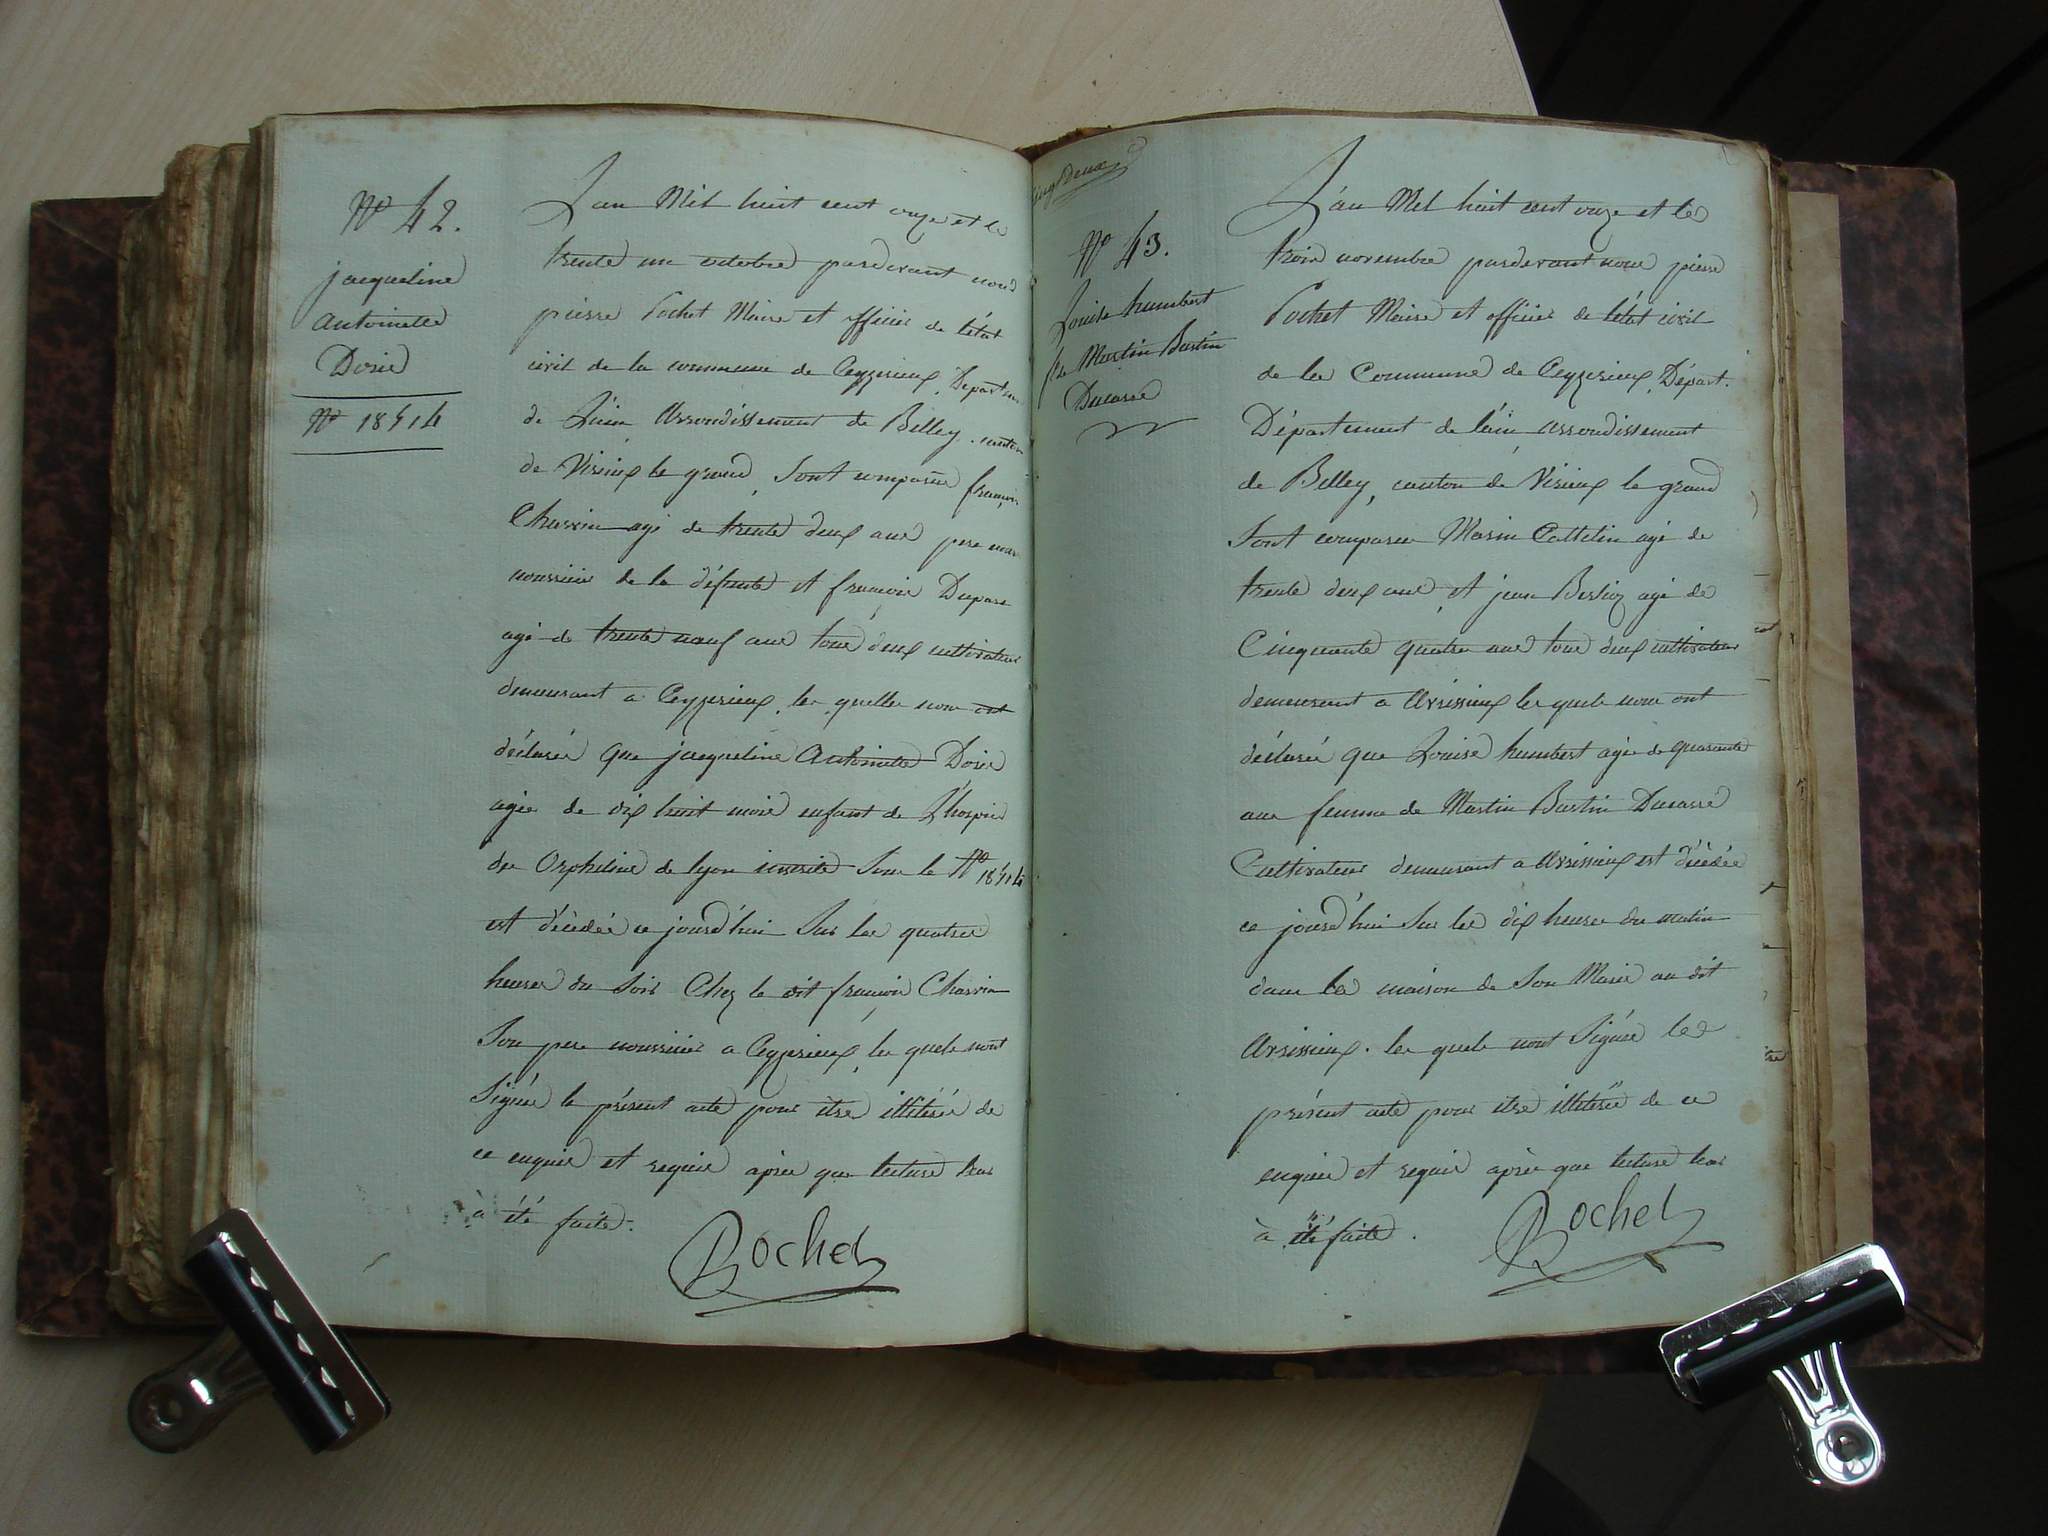 N° 42.
jacqueline
antoinette
Dorie
N° 18414
L'an Mil huit cent onze et le
trente un octobre pardevant nous
pierre Pochet Maire et officier de l'état
civil de la commune de Ceyzerieux, Départ
de L'ain Arrondissement de Belley, canton
de Virieux le grand, Sont comparus françois
Charvin agé de trente deux ans pere
nourricier de la défunte et françois Dupare
agé de trente neuf ans tous deux cultivateur
demeurant a Ceyzerieux, les quelles nous ont
déclaréé que jacqueline Antoinette Dorie
agée de dix huit mois enfant de L'hospice
des Orpheline de lyon inscrite Sous le N° 18414
est décédéé ce jourd'hui Sur les quatres
heures du Soir Chez le dit françois Charvin
Son pere nourricier a Ceyzerieux, les quels n'ont
Signéé le présent acte pour être illitéré de
ce enquis et requis après que lecture leur
à été faite.
Pochet
Louise humbert
fe Martin Bartin
Ducarre
N° 43.
L'an Mil huit cent onze et le
trois novembre pardevant nous pierre
Pochet Maire et officier de l'état civil
de la Commune de Ceyzerieux, Départ.
Département de l'ain arrondissement
de Belley, canton de Virieux le grand
Sont comparus Marin Cattelin agé de
trente deux ans, et jean Berlioz agé de
Cinquante quatre ans tous deux cultivateur
demeurant a Avrissieux les quels nous ont
déclaréé que Louise humbert agée de quarante
ans femme de Martin Bartin Ducarre
Cultivateur demeurant a Avrissieux est décédée
ce jourd'hui Sur les dix heures du matin
dans la maison de Son Marie au dit
Avrissieux. les quels n'ont Signée le
présent acte pour être illitérée de ce
enquis et requis après que lecture leur
à été faite.
Pochet